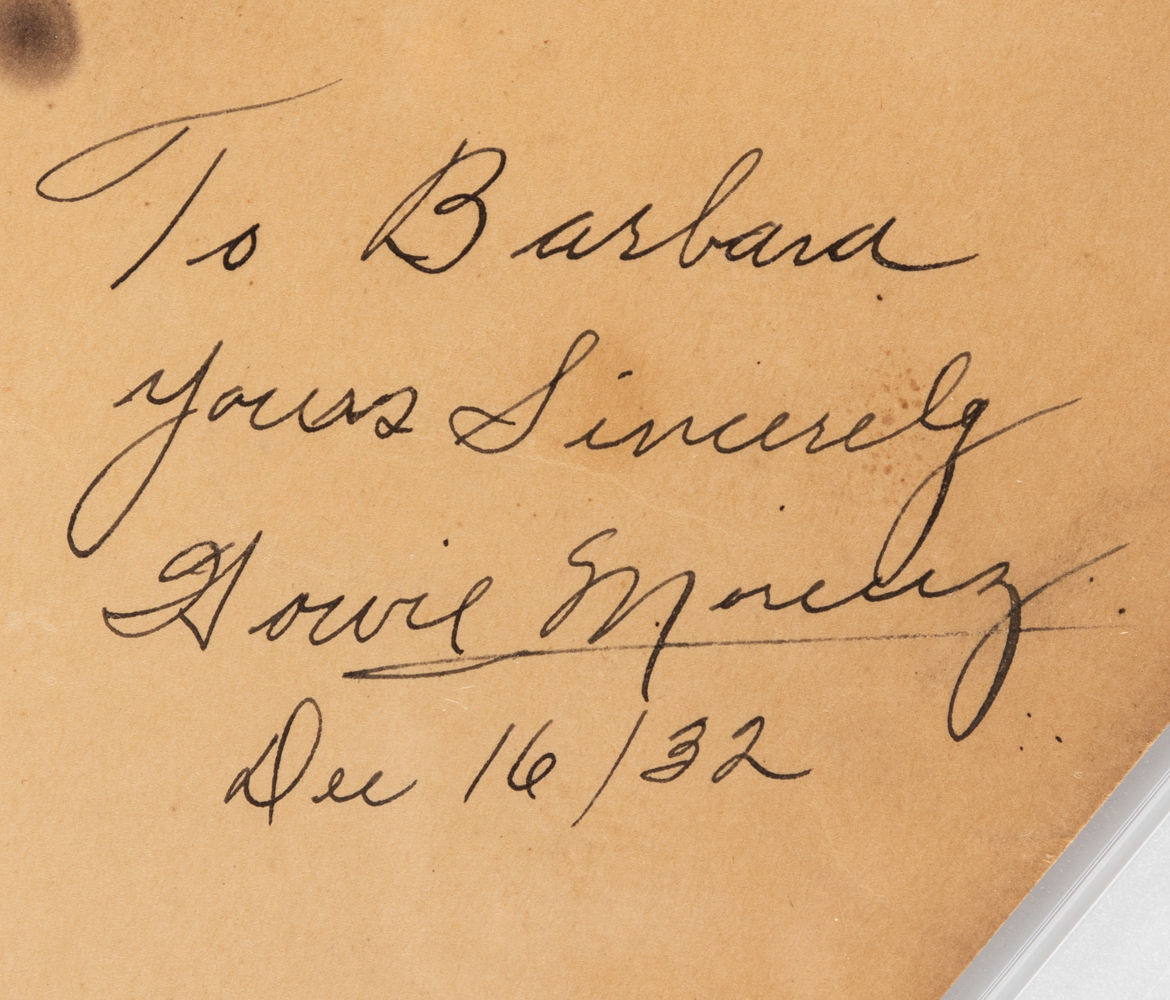 To Barbara
Yours Sincerely
Howie Morenz
Dec 16/32